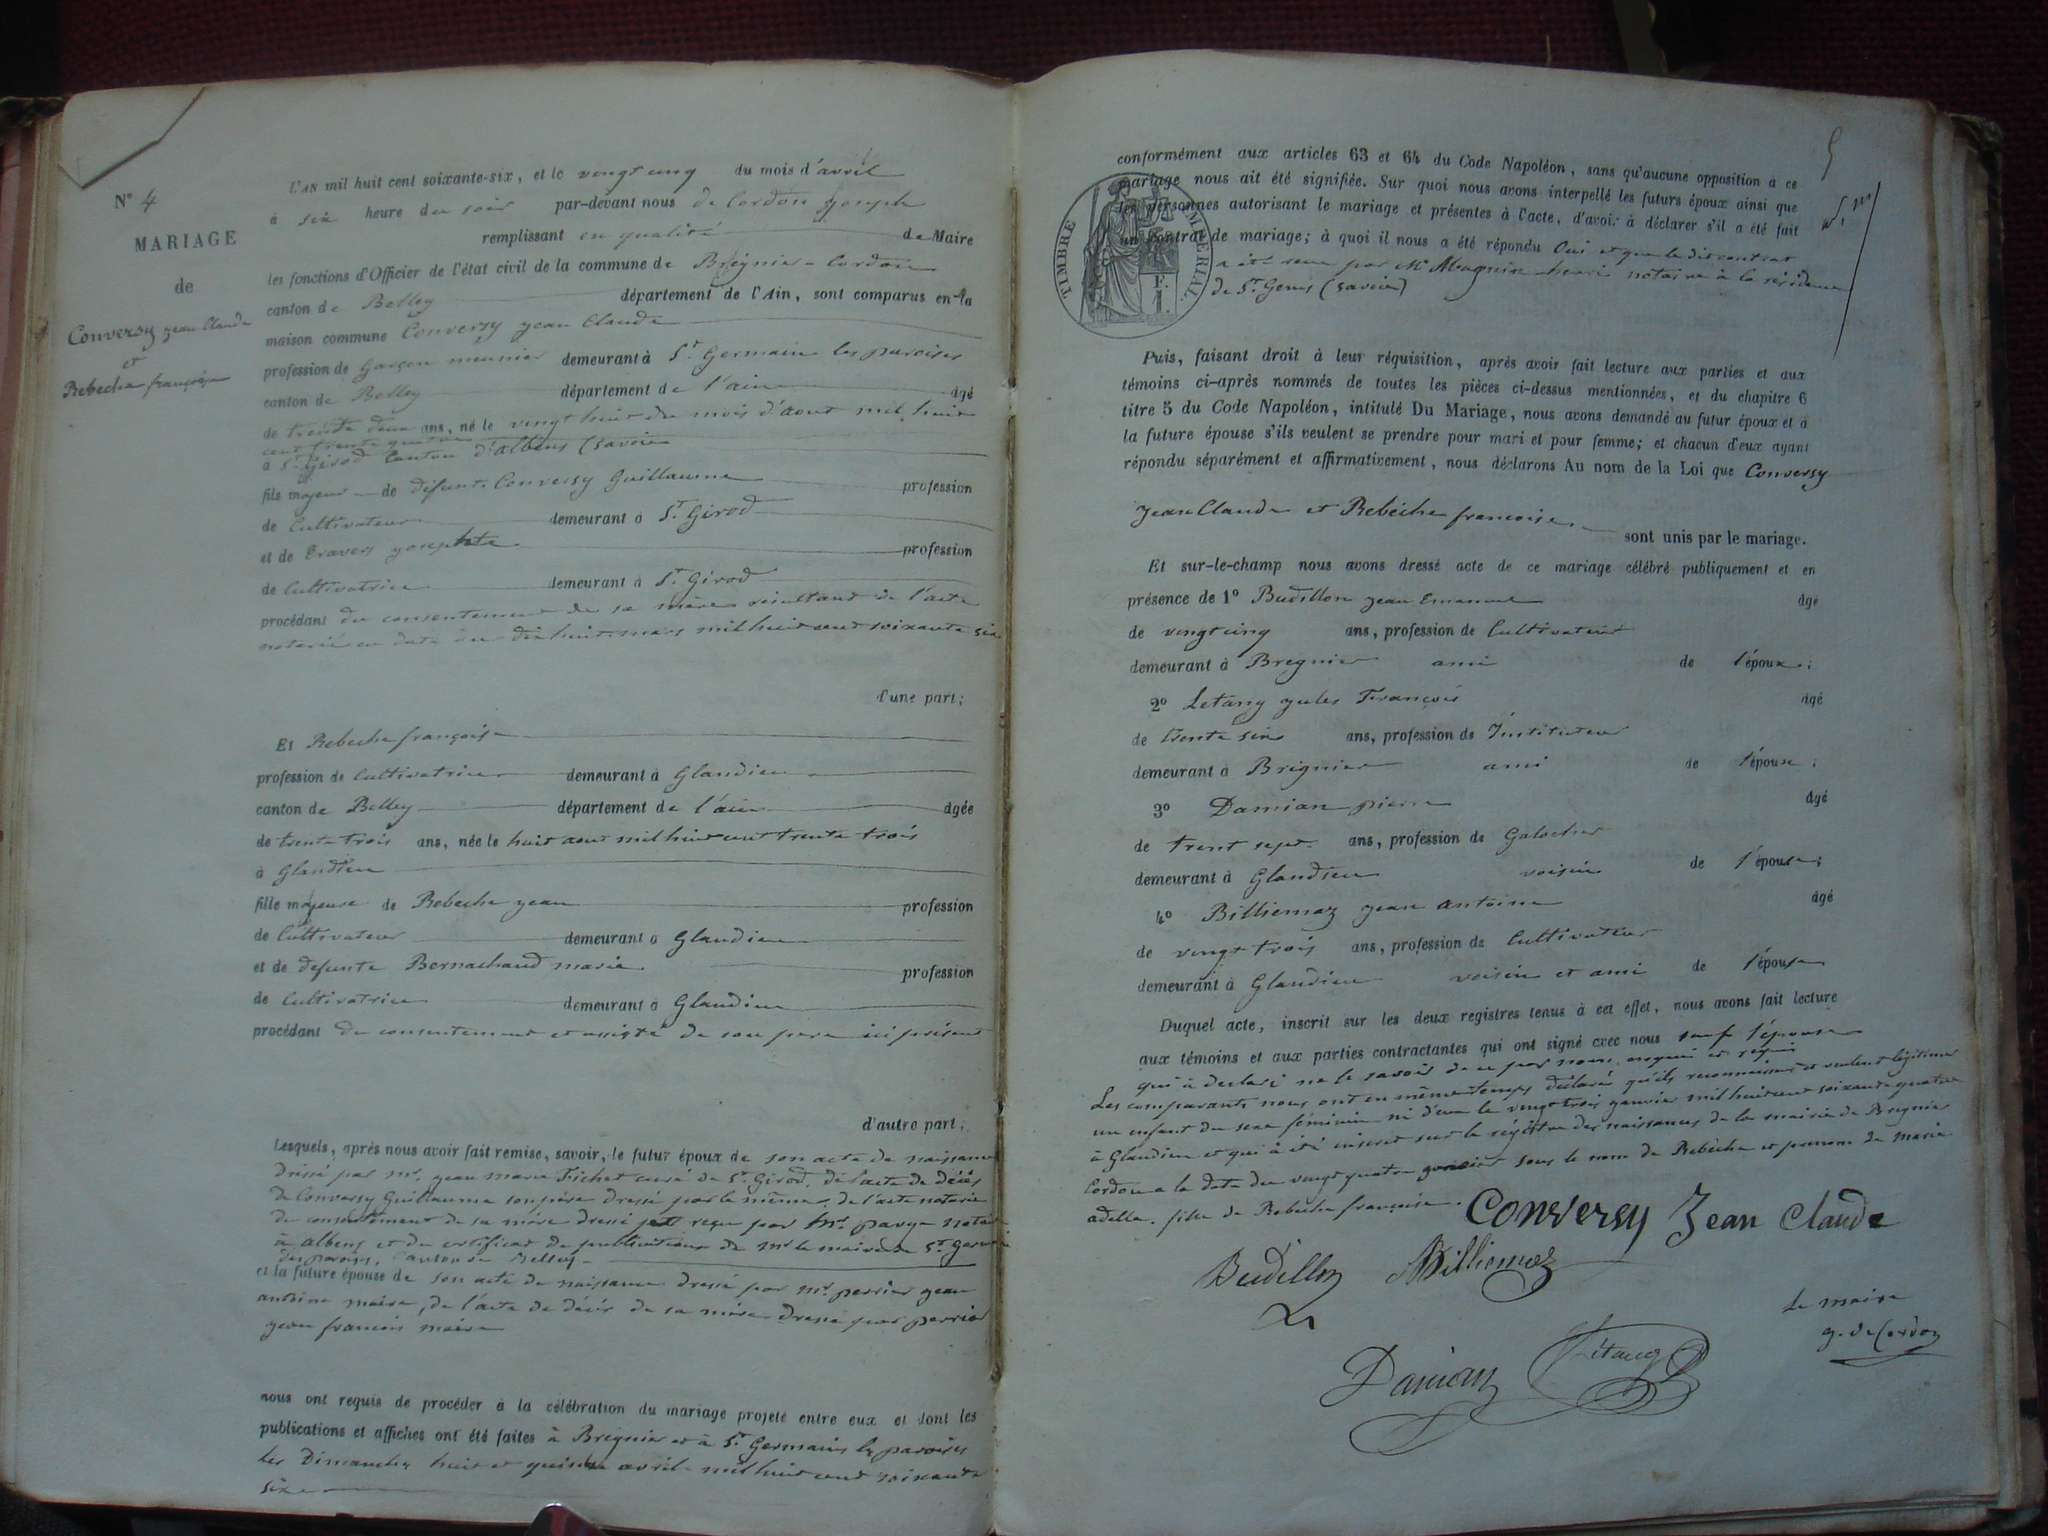 N° 4
MARIAGE
de
Conversy jean Claude
et
Rebeche françoise
L'AN mil huit cent soixante-six, et le vingt cinq du mois d'avril
à six heure du soir par-devant nous de Cordon joseph
remplissant en qualité de Maire
les fonctions d'Officier de l'état civil de la commune de Brégnier-Cordon
canton de Belley département de l'Ain, sont comparus en la
maison commune Conversy jean Claude
profession de Garçon meunier demeurant à St Germain les paroises
canton de Belley département de l'ain âgé
de trente deux ans, né le vingt huit du mois d'aout mil huit
cent trente quatre
à St Girod Canton d'albens (Savoie
fils majeur de défunt Conversy Guillaume profession
de Cultivateur demeurant à St Girod
et de Travers josephte profession
de Cultivatrice demeurant à St Girod
procédant du consentement de sa mère résultant de l'acte
notarié en date du dix huit mars mil huit cent soixante six
d'une part;
Et Rebeche françoise
profession de Cultivatrice demeurant à Glandieu
canton de Belley département de l'ain âgée
de trente trois ans, née le huit aout mil huit cent trente trois
à Glandieu
fille majeure de Rebeche jean profession
de Cultivateur demeurant à Glandieu
et de defunte Bernachaud marie profession
de Cultivatrice demeurant à Glandieu
procédant du consentement et assisté de son pere ici présent
d'autre part;
Lesquels, après nous avoir fait remise, savoir, le futur époux de son acte de naissance
dressé par mr. jean marie Fichet curé de St Girod. de l'acte de décès
de Conversy Guillaume son père dressé par le même, de l'acte notarié
du consentement de sa mère dressé reçu par Mr. pavy notaire
à albens et du certificat de publications de Mr le maire de St Germain
les paroises, canton de Belley
et la future épouse de son acte de naissance dressé par Mr. perrier jean
antoine maire, de l'acte de décès de sa mère dressé par perrier
jean francois maire
nous ont requis de procéder à la célébration du mariage projeté entre eux et dont les
publications et affiches ont été faites à Bregnier et à St Germain les paroises
les Dimanche huit et quinze avril mil huit cent soixante
six
5
conformément aux articles 63 et 64 du Code Napoléon, sans qu'aucune opposition à ce
mariage nous ait été signifiée. Sur quoi nous avons interpellé les futurs époux ainsi que
les personnes autorisant le mariage et présentes à l'acte, d'avoir à déclarer s'il a été fait
un contrat de mariage; à quoi il nous a été répondu Oui et que le dit contrat
a été reçu par Mr Magnin henri notaire à la résidence
de St Genis (Savoie)
TIMBRE IMPÉRIAL
1 F.
Puis, faisant droit à leur réquisition, après avoir fait lecture aux parties et aux
témoins ci-après nommés de toutes les pièces ci-dessus mentionnées, et du chapitre 6
titre 5 du Code Napoléon, intitulé Du Mariage, nous avons demandé au futur époux et à
la future épouse s'ils veulent se prendre pour mari et pour femme; et chacun d'eux ayant
répondu séparément et affirmativement, nous déclarons Au nom de la Loi que Conversy
Jean Claude et Rebèche francoise
sont unis par le mariage.
Et sur-le-champ nous avons dressé acte de ce mariage célébré publiquement et en
présence de 1° Budillon jean Emanuel âgé
de vingt cinq ans, profession de Cultivateur
demeurant à Bregnier ami de l'époux;
2° Letang jules François âgé
de trente six ans, profession de Instituteur
demeurant à Brégnier ami de l'épouse;
3° Damian pierre âgé
de trent sept ans, profession de Galocher
demeurant à Glandieu voisin de l'épouse;
4° Billiemaz jean antoine âgé
de vingt trois ans, profession de Cultivateur
demeurant à Glandieu voisin et ami de l'épouse
Duquel acte, inscrit sur les deux registres tenus à cet effet, nous avons fait lecture
aux témoins et aux parties contractantes qui ont signé avec nous sauf l'épouse
qui à déclaré ne le savoir de ce par nous enquis et requis
Les comparants nous ont en même temps déclaré qu'ils reconnaissent et veulent légitimer
un enfant du sexe féminin né d'eux le vingt trois janvier mil huit cent soixante quatre
à Glandieu et qui à été inscrit sur le régistre des naissances de la mairie de Bregnier
Cordon a la date du vingt quatre janvier sous le nom de Rebèche et prenom de Marie
adelle. fille de Rebèche françoise.
Conversy Jean Claude
Budillon Billiemaz
Le maire
j. de Cordon
Damian Létang